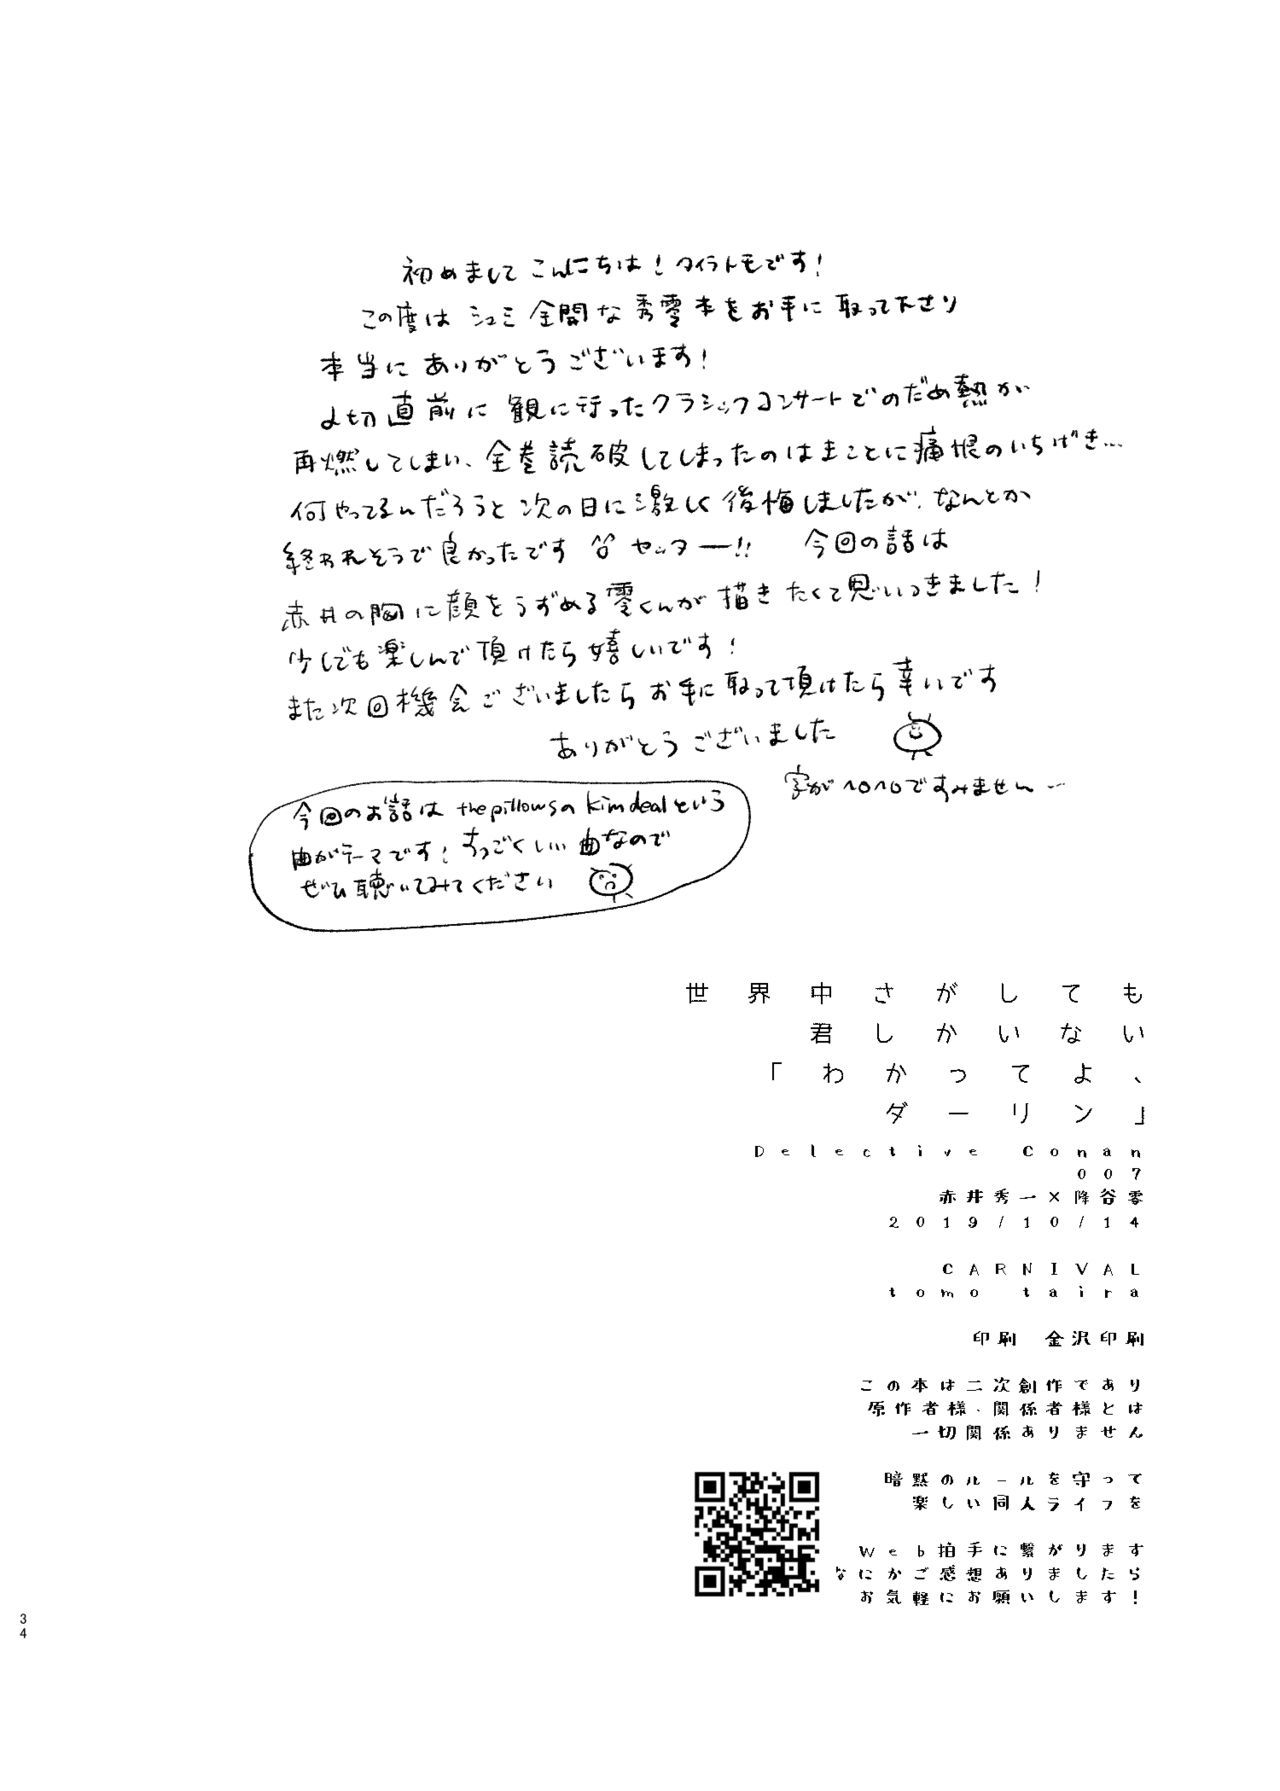 初めまして こんにちは！タイラトモです！
この度は シュミ全開な秀零本をお手に取って下さり
本当に ありがとうございます！
〆切直前に 観に行ったクラシックコンサートでのだめ熱が
再燃してしまい、全巻読破してしまったのはまことに痛恨のいちげき…
何やってるんだろうと次の日に激しく後悔しましたが、なんとか
終われそうで良かったです ヤッター!! 今回の話は
赤井の胸に顔をうずめる零くんが描きたくて思いつきました！
少しでも楽しんで頂けたら嬉しいです！
また次回機会ございましたらお手に取って頂けたら幸いです
ありがとうございました
字がヘロヘロですみません…
今回のお話は the pillowsの kim dealという
曲がテーマです！すっごくいい曲なので
ぜひ聴いてみてください
世界中さがしても
君しかいない
「わかってよ、
ダーリン」
Detective Conan
007
赤井秀一×降谷零
2019/10/14
CARNIVAL
tomo taira
印刷 金沢印刷
この本は二次創作であり
原作者様・関係者様とは
一切関係ありません
暗黙のルールを守って
楽しい同人ライフを
Web拍手に繋がります
なにかご感想ありましたら
お気軽にお願いします！
34